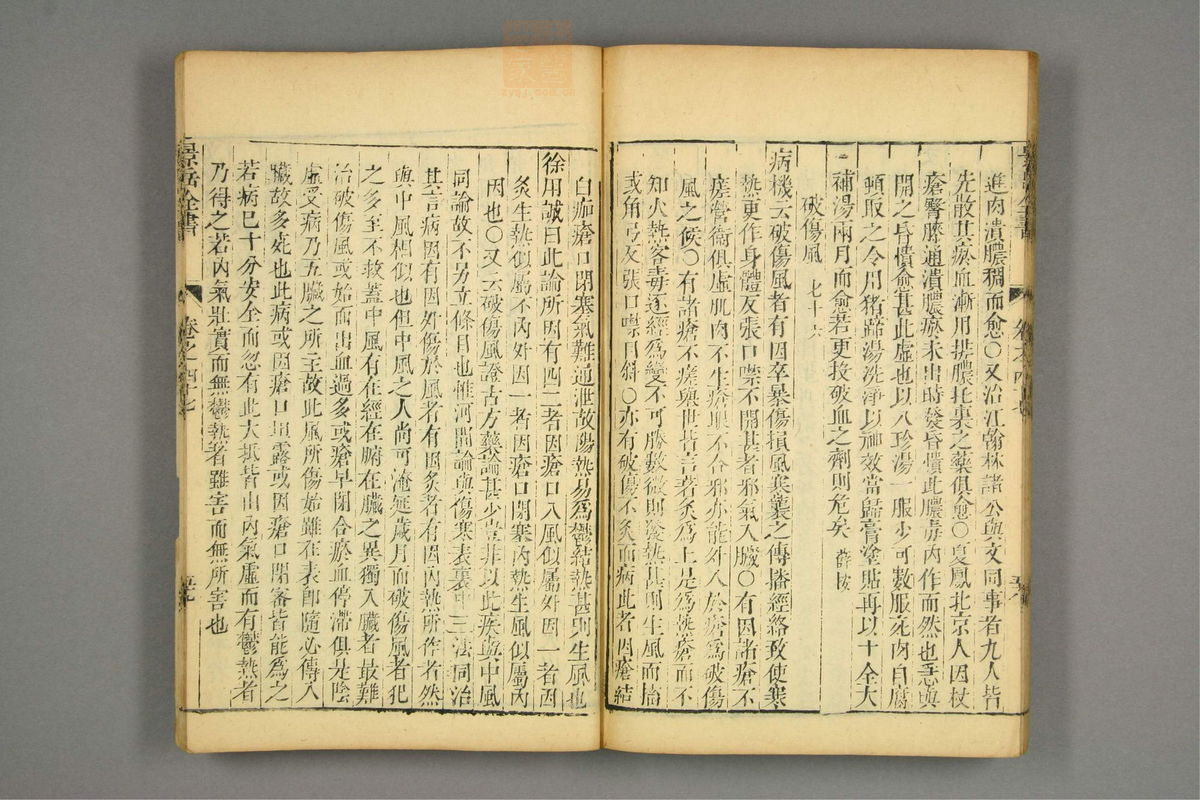 進肉潰膿稠而愈○又治江翰林諸公與文同事者九人皆
先散其瘀血漸用排膿托裏之藥俱愈○夏鳳北京人因杖
瘡臀膝通潰膿瘀未出時發昏憒此膿毒內作而然也急與
開之昏憒愈甚此虛也以八珍湯一服少可數服死肉自腐
頓取之令用猪蹄湯洗淨以神效當歸膏塗貼再以十全大
補湯兩月而愈若更投破血之劑則危矣 薛按
破傷風 七十六
病機云破傷風者有因卒暴傷損風寒襲之傳播經絡致使寒
熱更作身體反張口噤不開甚者邪氣入臟○有因諸瘡不
瘥營衛俱虛肌肉不生瘡眼不合邪亦能外入於瘡爲破傷
風之候○有諸瘡不瘥與世皆言著灸爲上是爲熱瘡而不
知火熱客毒逐經爲變不可勝數微則發熱甚則生風而搐
或角弓反張口噤目斜○亦有破傷不灸而病此者因瘡結
白痂瘡口閉塞氣難通泄故陽熱易爲鬱結熱甚則生風也
徐用誠曰此論所因有四二者因瘡口入風似屬外因一者因
灸生熱似屬不內外因一者因瘡口閉塞內熱生風似屬內
因也○又云破傷風證古方藥論甚少豈非以此疾與中風
同論故不另立條目也惟河間論與傷寒表裏中三法同治
其言病因有因外傷於風者有因灸者有因內熱所作者然
與中風相似也但中風之人尚可淹延歲月而破傷風者犯
之多至不救蓋中風有在經在腑在臟之異獨入臟者最難
治破傷風或始而出血過多或瘡早閉合瘀血停滯俱是陰
虛受病乃五臟之所主故此風所傷始雖在表即隨必傳入
臟故多死也此病或因瘡口出露或因瘡口閉密皆能爲之
若病已十分安全而忽有此大抵皆由內氣虛而有鬱熱者
乃得之若內氣壯實而無鬱熱者雖害而無所害也
景岳全書
卷之四十七